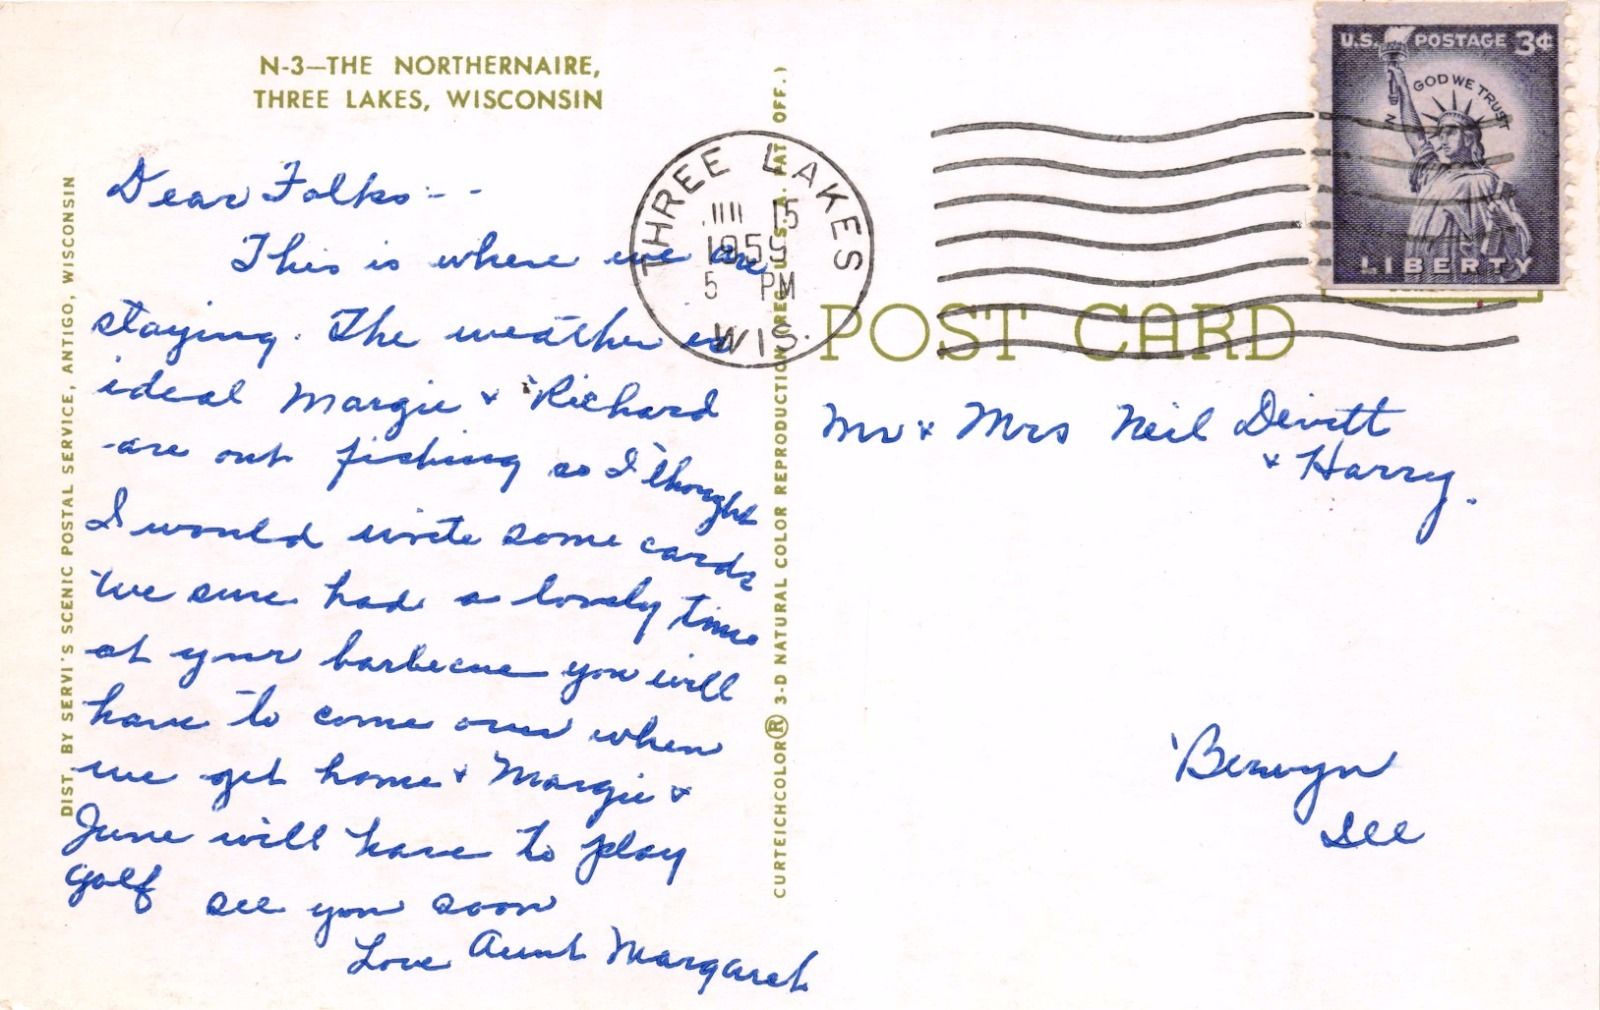 N-3—THE NORTHERNAIRE,
THREE LAKES, WISCONSIN
Dear Folks - -
This is where we are
staying. The weather is
ideal Margie & Richard
are out fishing so I thought
I would write some cards
We sure had a lovely time
at your barbecue you will
have to come over when
we get home & Margie &
June will have to play
golf see you soon
Love Aunt Margaret
DIST. BY SERVI'S SCENIC POSTAL SERVICE, ANTIGO, WISCONSIN
CURTEICHCOLOR® 3-D NATURAL COLOR REPRODUCTION (REG. U.S.A. PAT. OFF.)
THREE LAKES
15
1959
5 PM
WIS.
U.S. POSTAGE 3¢
IN GOD WE TRUST
LIBERTY
POST CARD
Mr & Mrs Neil Devitt
& Harry.
Berwyn
Ill